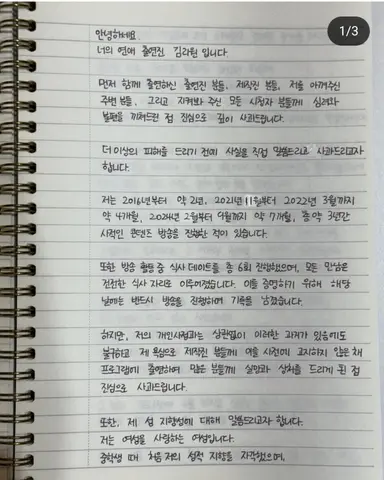 1/3
안녕하세요.
너의 연애 출연진 김리원 입니다.
먼저 함께 출연하신 출연진 분들, 제작진 분들, 저를 아껴주신
주변 분들, 그리고 지켜봐 주신 모든 시청자 분들께 심려와
불편을 끼쳐드린 점 진심으로 깊이 사과드립니다.
더 이상의 피해를 드리기 전에 사실을 직접 말씀드리고 사과드리고자
합니다.
저는 2016년부터 약 2년, 2021년 11월부터 2022년 3월까지
약 4개월, 2024년 2월부터 9월까지 약 7개월, 총 약 3년간
사적인 콘텐츠 방송을 진행한 적이 있습니다.
또한 방송 활동 중 식사 데이트를 총 6회 진행했으며, 모든 만남은
건전한 식사 자리로 이루어졌습니다. 이를 증명하기 위해 해당
날에는 반드시 방송을 진행하여 기록을 남겼습니다.
하지만, 저의 개인사정과는 상관없이 이러한 과거가 있음에도
불구하고 제 욕심으로 제작진 분들께 이를 사전에 고지하지 않은 채
프로그램에 출연하여 많은 분들께 실망과 상처를 드리게 된 점
진심으로 사과드립니다.
또한, 제 성 지향성에 대해 말씀드리고자 합니다.
저는 여성을 사랑하는 여성입니다.
중학생 때 처음 저의 성적 지향을 자각했으며,